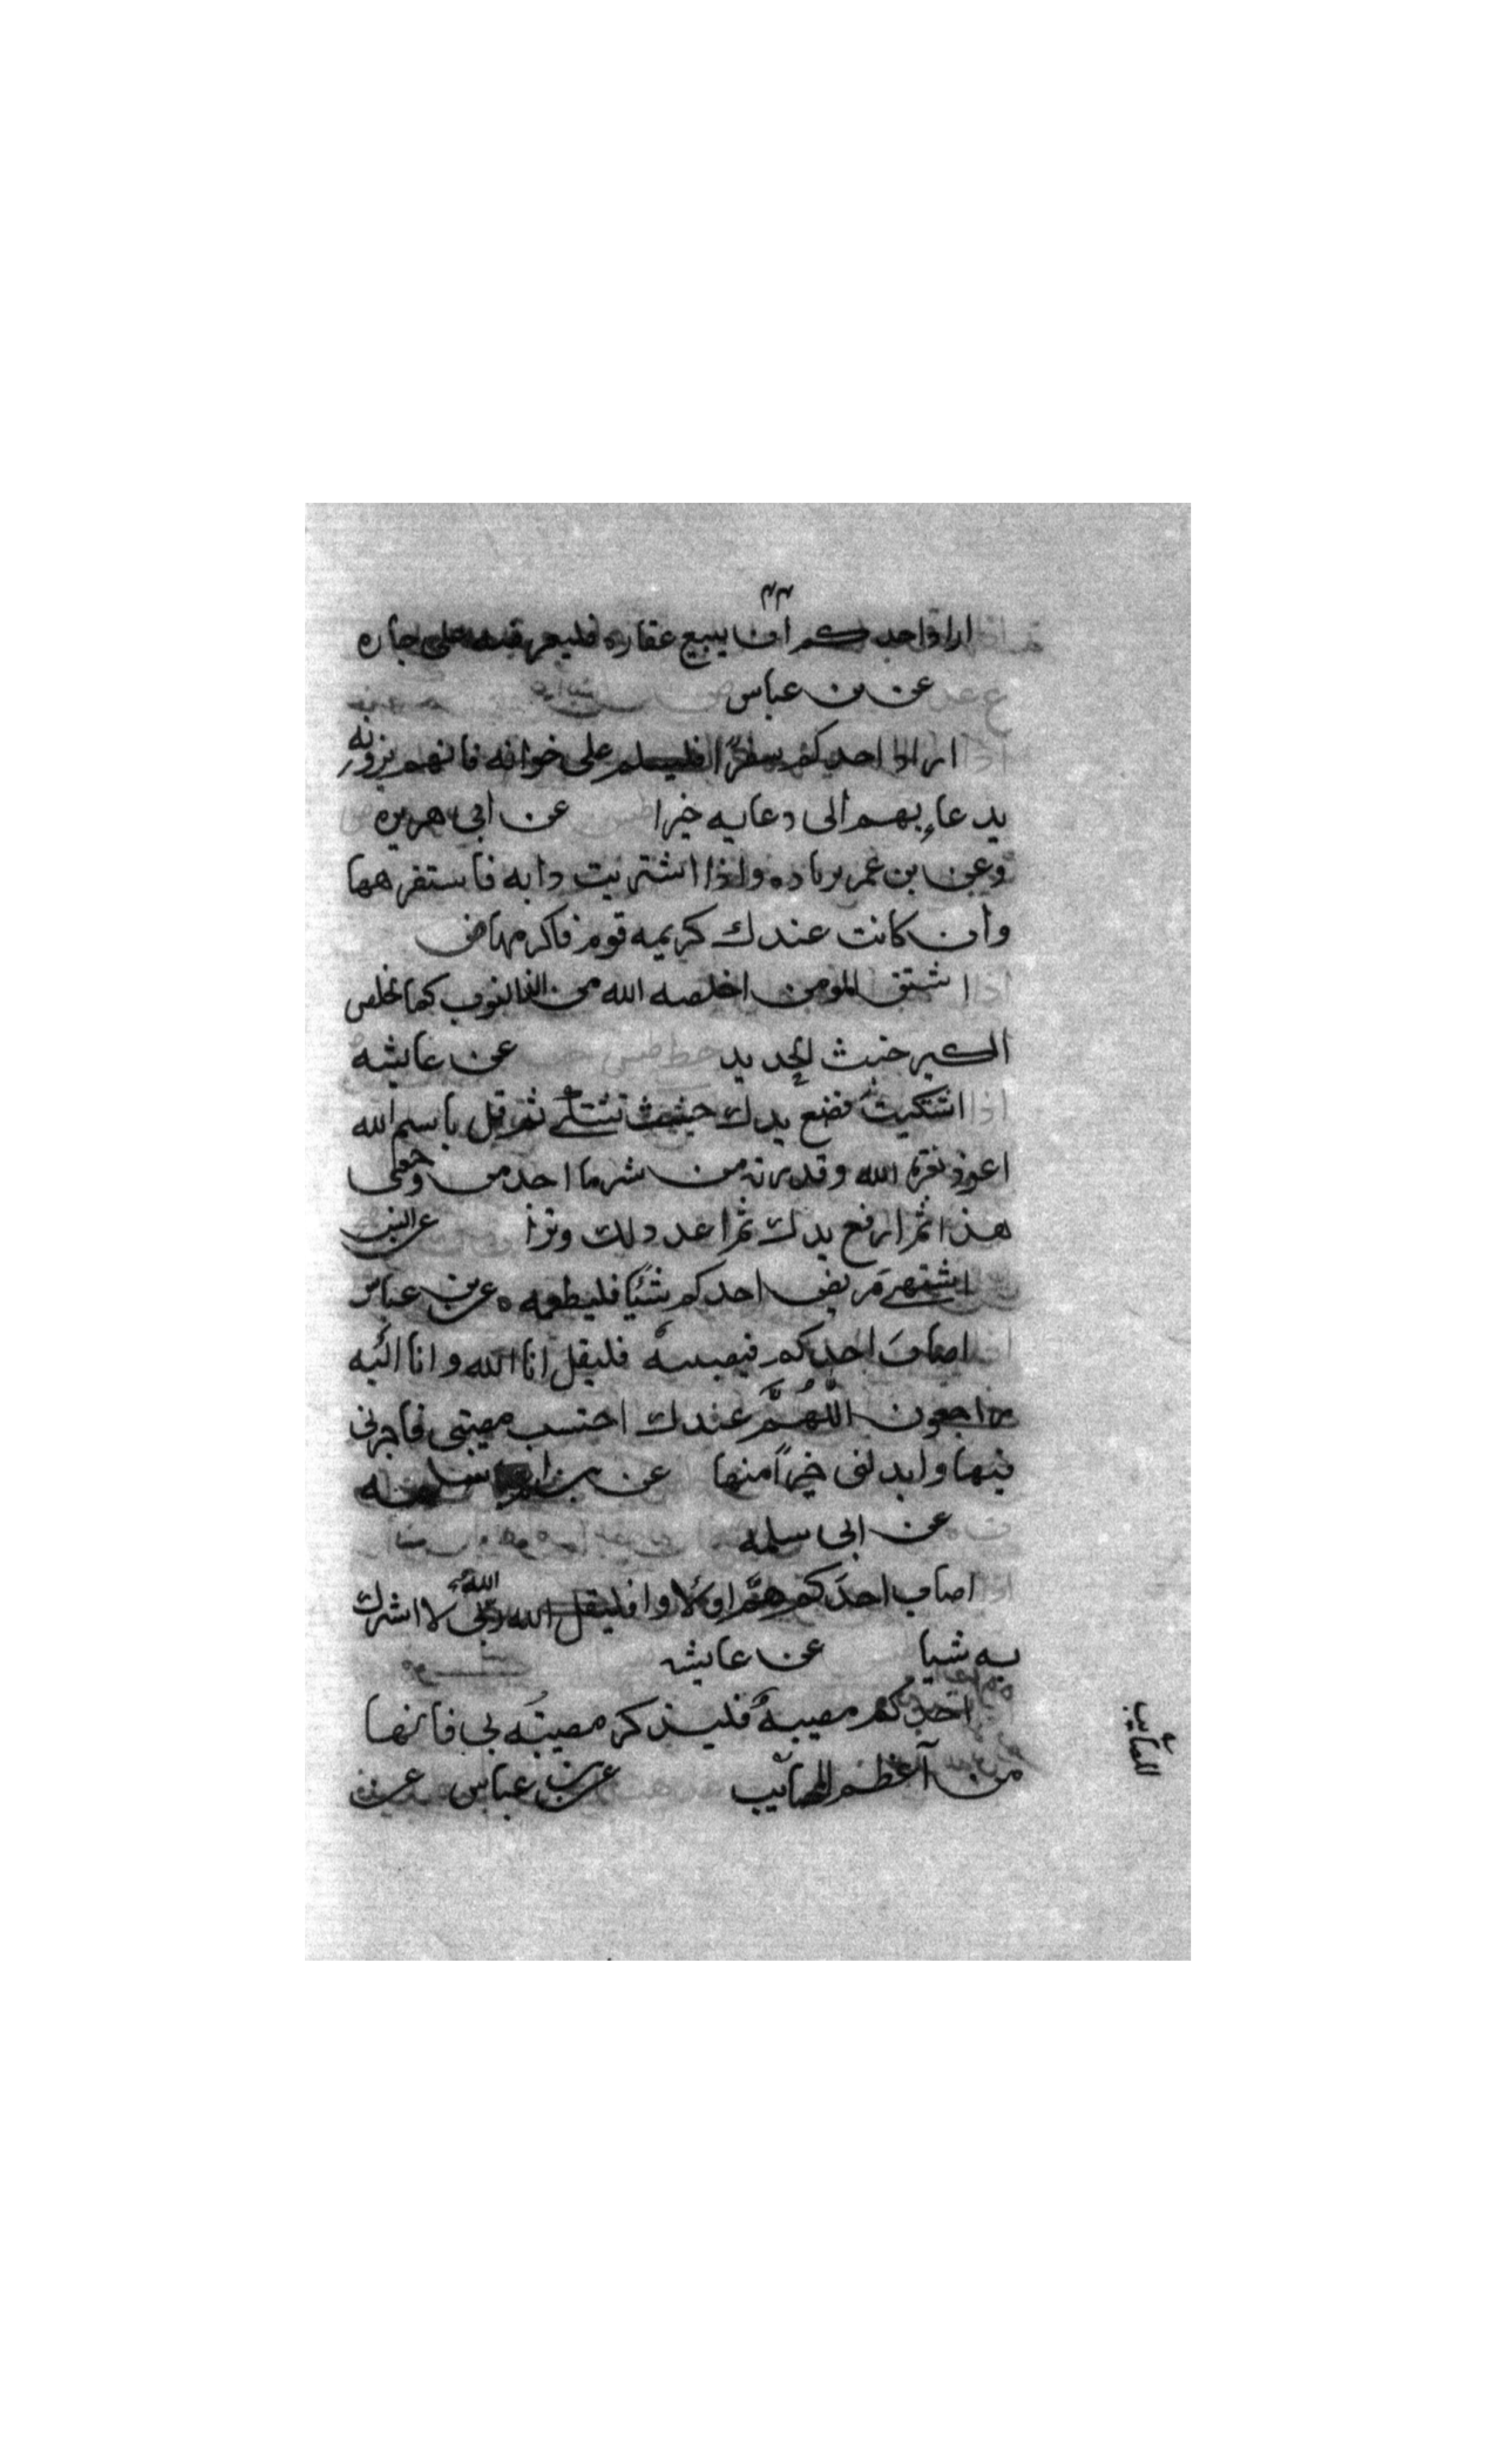 ٢٣
اراد احدكم ان يبيع عقاره فليعرضه على جاره
عن بن عباس
اراد احدكم سفرًا فليسلم على خوانه فانهم يزيدونه
بدعاءبهم الى دعايه خيرا عن ابى هريره
وعن بن عمر برياده واذا اشتريت دابه فاستفرهها
وان كانت عندك كريمه قوم فاكرمها
اشتكى المومن اخلصه الله من الذنوب كما يخلص
الكير خبث الحديد عن عايشه
اذا اشتكيت فضع يدك حيث تشتكى ثم قل باسم الله
اعوذ بعزة الله وقدرته من شر ما اجد من وجعى
هذا ثم ارفع يدك ثم اعد ذلك وترا عن انس
اشتهى مريض احدكم شئيا فليطعمه ه عن بن عباس
اصاب احدكم مصيبة فليقل انا لله وانا اليه
راجعون اللهُمَّ عندك احتسب مصيبتى فاجرنى
فيها وابدلنى خيرًا منها عن سلمه
عن ابى سلمه
اصاب احدكم هم او لاوا فليقل الله الله ربى لا اشرك
به شيا عن عايشه
احدكم مصيبة فليذكر مصيبته بى فانها
من آعظم المصائب عن بن عباس عن
المصائب